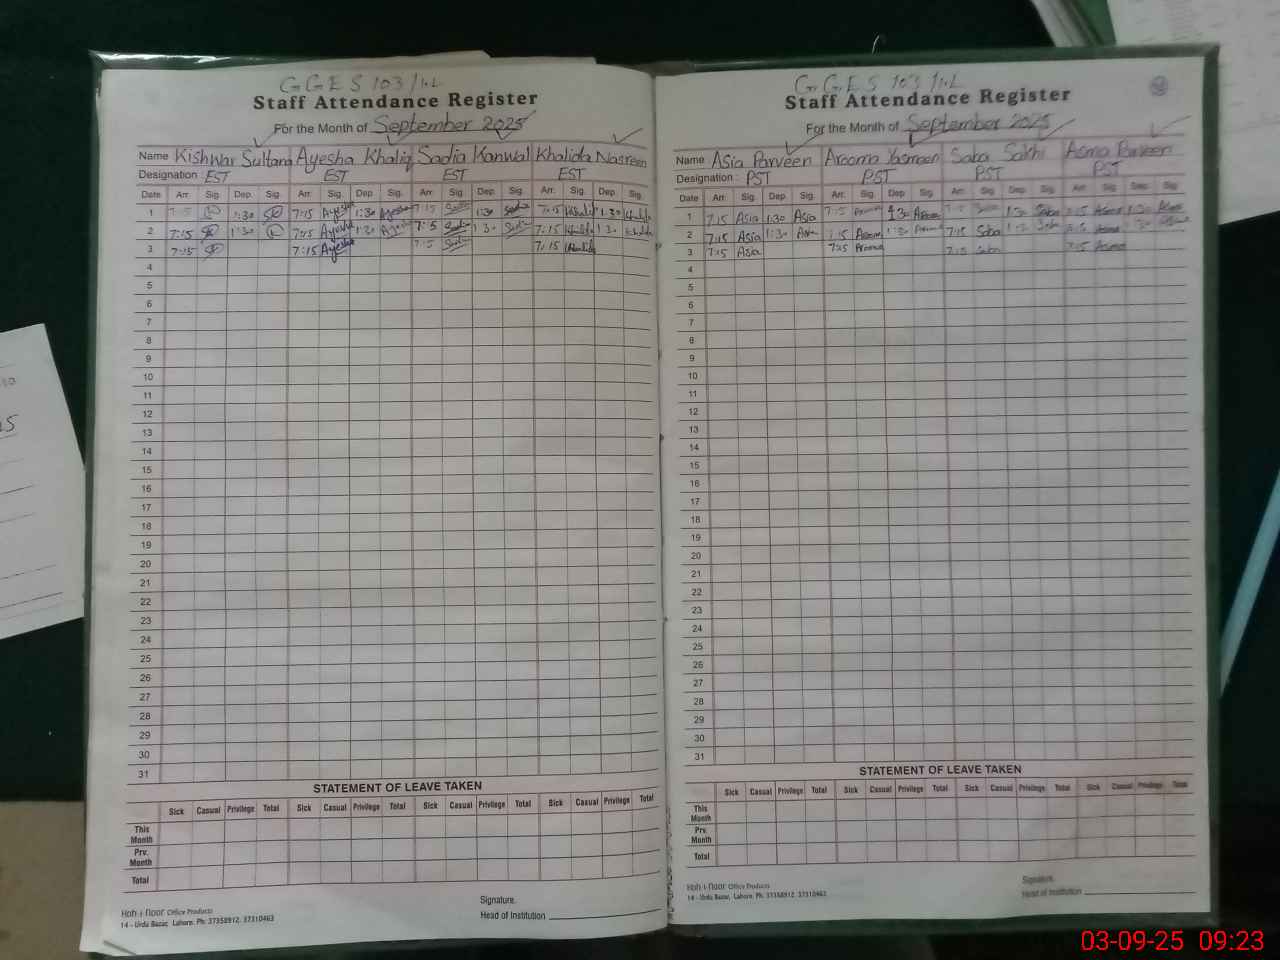 GGES 103/1.L
Staff Attendance Register
For the Month of September 2025
Name Kishwar Sultana Ayesha Khaliq Sadia Kanwal Khalida Nasreen
Designation EST EST EST EST
Date Arr. Sig. Dep. Sig. Arr. Sig. Dep Sig. Arr. Sig. Dep. Sig. Arr. Sig. Dep. Sig.
1 7:15 1:30 7:15 Ayesha 1:30 Ayesha 7:15 Sadia 1:30 Sadia 7:15 Khalida 1:30 Khalida
2 7:15 1:30 7:15 Ayesha 1:30 Ayesha 7:15 Sadia 1:30 Sadia 7:15 Khalida 1:30 Khalida
3 7:15 7:15 Ayesha 7:15 Sadia 7:15 Khalida
4
5
6
7
8
9
10
11
12
13
14
15
16
17
18
19
20
21
22
23
24
25
26
27
28
29
30
31
STATEMENT OF LEAVE TAKEN
Sick Casual Privilege Total Sick Casual Privilege Total Sick Casual Privilege Total Sick Casual Privilege Total
This Month
Prv. Month
Total
Signature.
Head of Institution
Hoh-i-Noor Office Products
14 - Urdu Bazar, Lahore. Ph: 37358912, 37310463
G.G.E.S 103/1.L
Staff Attendance Register
For the Month of September 2025
Name Asia Parveen Arooma Yasmeen Saba Sakhi Asma Parveen
Designation : PST PST PST PST
Date Arr. Sig. Dep Sig. Arr. Sig. Dep Sig. Arr. Sig. Dep. Sig. Arr. Sig. Dep. Sig.
1 7:15 Asia 1:30 Asia 7:15 Arooma 1:30 Arooma 7:15 Saba 1:30 Saba 7:15 Asma 1:30 Asma
2 7:15 Asia 1:30 Asia 7:15 Arooma 1:30 Arooma 7:15 Saba 1:30 Saba 7:15 Asma 1:30 Asma
3 7:15 Asia 7:15 Arooma 7:15 Saba 7:15 Asma
4
5
6
7
8
9
10
11
12
13
14
15
16
17
18
19
20
21
22
23
24
25
26
27
28
29
30
31
STATEMENT OF LEAVE TAKEN
Sick Casual Privilege Total Sick Casual Privilege Total Sick Casual Privilege Total Sick Casual Privilege Total
This Month
Prv. Month
Total
Signature.
Head of Institution
Hoh-i-Noor Office Products
14 - Urdu Bazar, Lahore. Ph: 37358912, 37310463
03-09-25 09:23